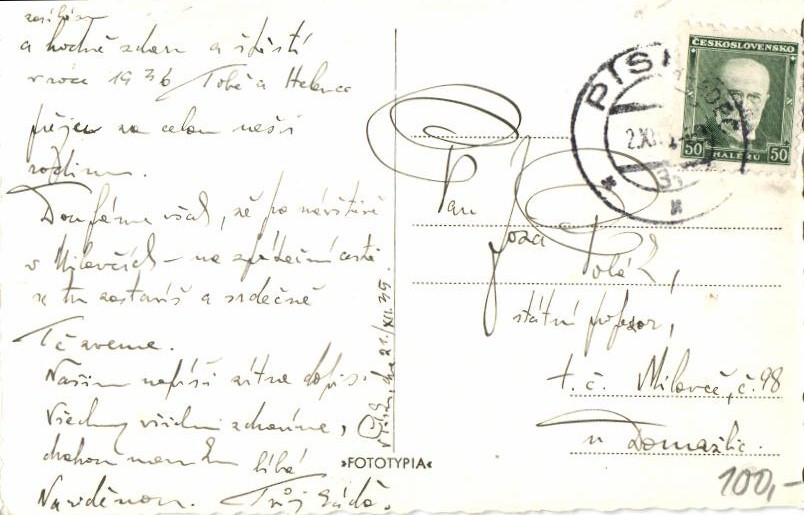 a hodně zdaru a štěstí
v roce 1936 Tobě a Helence
přejeme za celou naši
rodinu.
Doufáme však, že po návštěvě
v Milavčích – na zpáteční cestě
se tu zastavíš a srdečně
Tě zveme.
Našim napíši zítra dopis.
Všechny všichni zdravíme,
líbá
Nazděnou. Tvůj
v Písku, dne 21./XII.35.
»FOTOTYPIA«
ČESKOSLOVENSKO
50 HALÉŘŮ 50
PÍSEK
Pan
Joza
státní profesor,
t. č. Milavče, č. 98
u Domažlic.
100,-